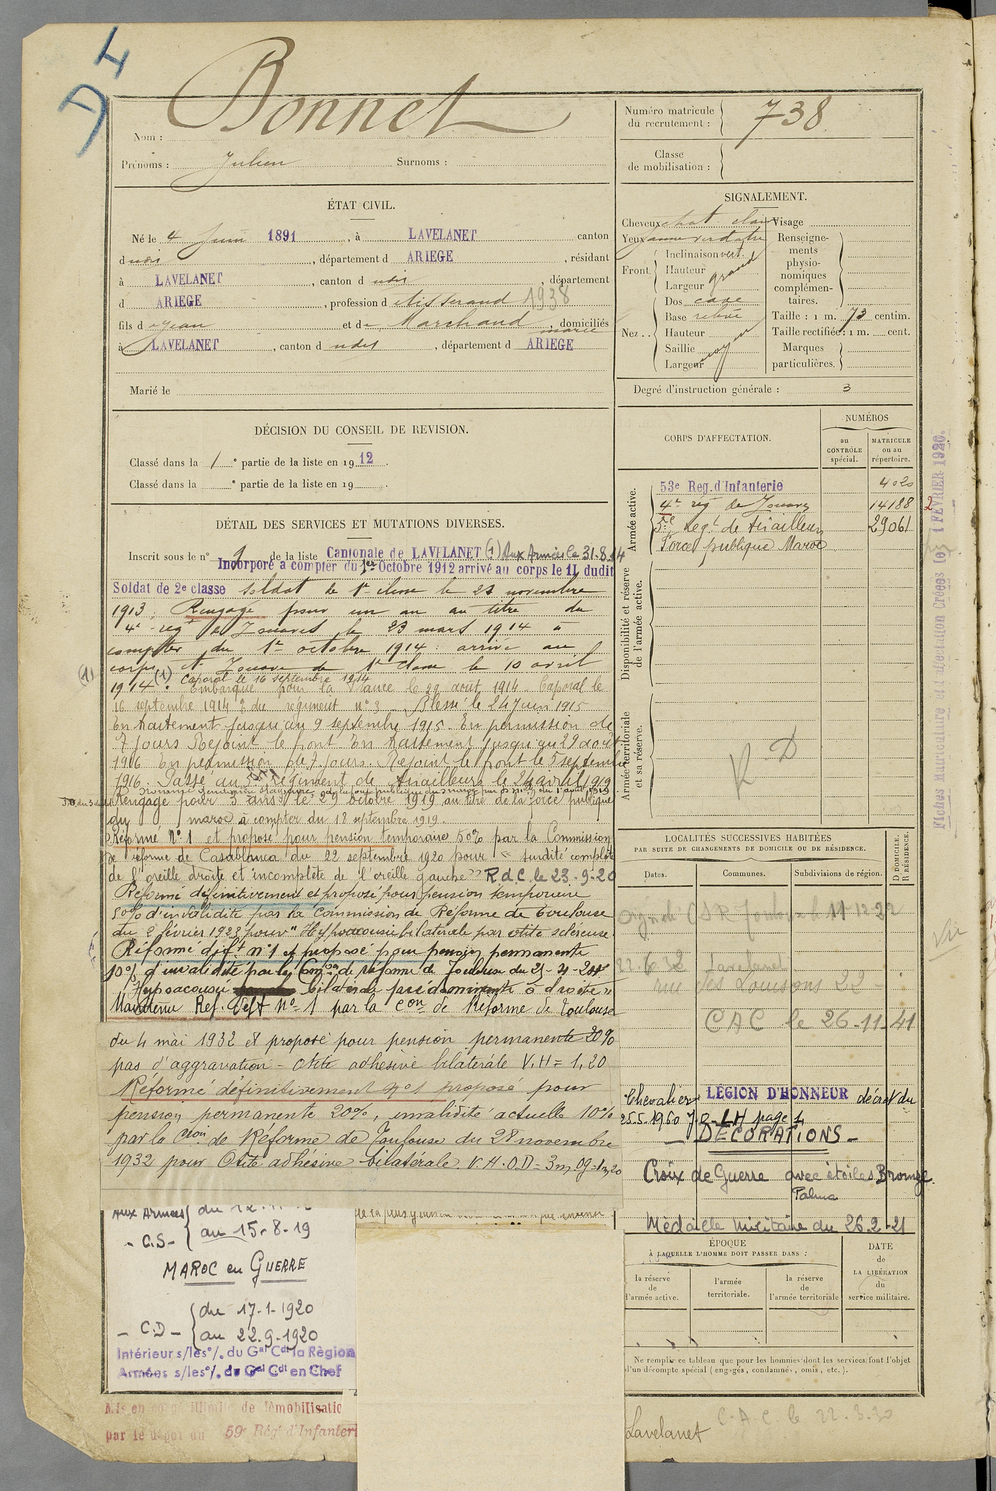 D4
Bonnet
Nom :
Prénoms : Julien Surnoms :
Numéro matricule du recrutement : 738
Classe de mobilisation :
ÉTAT CIVIL.
Né le 4 Juin 1891, à LAVELANET canton
dudit, département d ARIEGE, résidant
à LAVELANET, canton dudit, département
d ARIEGE, profession d tisserand 1938
fils d Jean et de Marchand, domiciliés
à LAVELANET, canton dudit, département d ARIEGE
Marié le
SIGNALEMENT.
Cheveux chat. clair Visage
Yeux
Renseignements physionomiques complémentaires.
Front Inclinaison vert.
Hauteur grand
Largeur
Nez Dos cave
Base
Hauteur moyen
Saillie
Largeur
Taille : 1 m. 73 centim.
Taille rectifiée : 1 m. cent.
Marques particulières.
Degré d'instruction générale : 3
DÉCISION DU CONSEIL DE REVISION.
Classé dans la 1e partie de la liste en 1912.
Classé dans la e partie de la liste en 19
CORPS D'AFFECTATION.
NUMÉROS
au CONTRÔLE spécial.
MATRICULE ou au répertoire.
Armée active.
53e Reg. d'Infanterie 4020
4e rég de Zouaves 14188
5e Regt de Tirailleurs 29061
Force publique Maroc
Disponibilité et réserve de l'armée active.
Armée territoriale et sa réserve.
R D
DÉTAIL DES SERVICES ET MUTATIONS DIVERSES.
Inscrit sous le n° 9 de la liste Cantonale de LAVELANET (1) Aux Armées le 31.8.14
Incorporé à compter du 1er Octobre 1912 arrivé au corps le 11 dudit
Soldat de 2e classe soldat de 1e classe le 23 novembre
1913. Rengagé pour un an au titre du
4e rég de Zouaves le 23 mars 1914 à
compter du 1er octobre 1914. arrivé au
corps et Zouave de 1e classe le 10 avril
(1) Caporal le 16 septembre 1914
1914. Embarqué pour la France le 29 août 1914. Caporal le
16 septembre 1914 du régiment n° 3. Blessé le 24 Juin 1915
En traitement jusqu'au 9 septembre 1915. En permission de
7 jours Rejoint le front En traitement jusqu'au 29 août
1916 En permission de 7 jours. Rejoint le front le 5 septembre
1916. Passé au 5e régiment de Tirailleurs le 24 avril 1919
Rengagé pour 3 ans le 29 octobre 1919 au titre de la force publique
du maroc à compter du 18 septembre 1919.
Réformé N° 1 et proposé pour pension temporaire 50% par la Commission
de réforme de Casablanca du 22 septembre 1920 pour "surdité complète
de l'oreille droite et incomplète de l'oreille gauche" R d C. le 23-9-20
Réformé définitivement et proposé pour pension temporaire
50% d'invalidité par la commission de Réforme de Toulouse
du 2 février 1928 pour "Hypoacousie bilatérale par otite scléreuse.
Réformé déft n°1 et proposé pour pension permanente
10% d'invalidité par la Comon de réforme de Toulouse du
Hypoacousie bilatérale prédominante à droite"
Maintenu Ref. Deft N° 1 par la Con de Réforme de Toulouse
du 4 mai 1932 et proposé pour pension permanente 20%
pas d'aggravation - Otite adhésive bilatérale V.H = 1,20
Réformé définitivement n°1 proposé pour
pension permanente 20%, invalidité actuelle 10%
par la Cion de Réforme de Toulouse du 28 novembre
1932 pour Otite adhésive bilatérale V.H.O.D = 3m,09=1m,20
LOCALITÉS SUCCESSIVES HABITÉES
PAR SUITE DE CHANGEMENTS DE DOMICILE OU DE RÉSIDENCE.
Dates. Communes. Subdivisions de région. D DOMICILE. R RÉSIDENCE.
CSR Toulouse le 11-12-22
22.6.32 Lavelanet
rue des 22
CAC le 26-11-41
Chevalier LÉGION D'HONNEUR décret du
25.5.1960 J.O. LH page 1
- DÉCORATIONS -
Croix de Guerre avec étoiles Bronze.
Palme
Médaille militaire du 26.2-21
Aux Armées
- C.S - au 15-8-19
MAROC en GUERRE
- C.D - du 17-1-1920
au 22.9-1920
Intérieur s/les °/. du Gal Cdt la Région
Armées s/les °/. du Gal Cdt en Chef
Mis en congé illimité de démobilisatio
par le dépôt du 59e Rég. d'Infanteri
ÉPOQUE
À LAQUELLE L'HOMME DOIT PASSER DANS :
la réserve de l'armée active.
l'armée territoriale.
la réserve de l'armée territoriale
DATE de LA LIBÉRATION du service militaire.
Ne remplir ce tableau que pour les hommes dont les services font l'objet
d'un décompte spécial (engagés, condamnés, omis, etc.).
Lavelanet C.A.C. le 22.3.30
Fiches Matriculaire et d'affectation Créées le 1 FÉVRIER 1926.